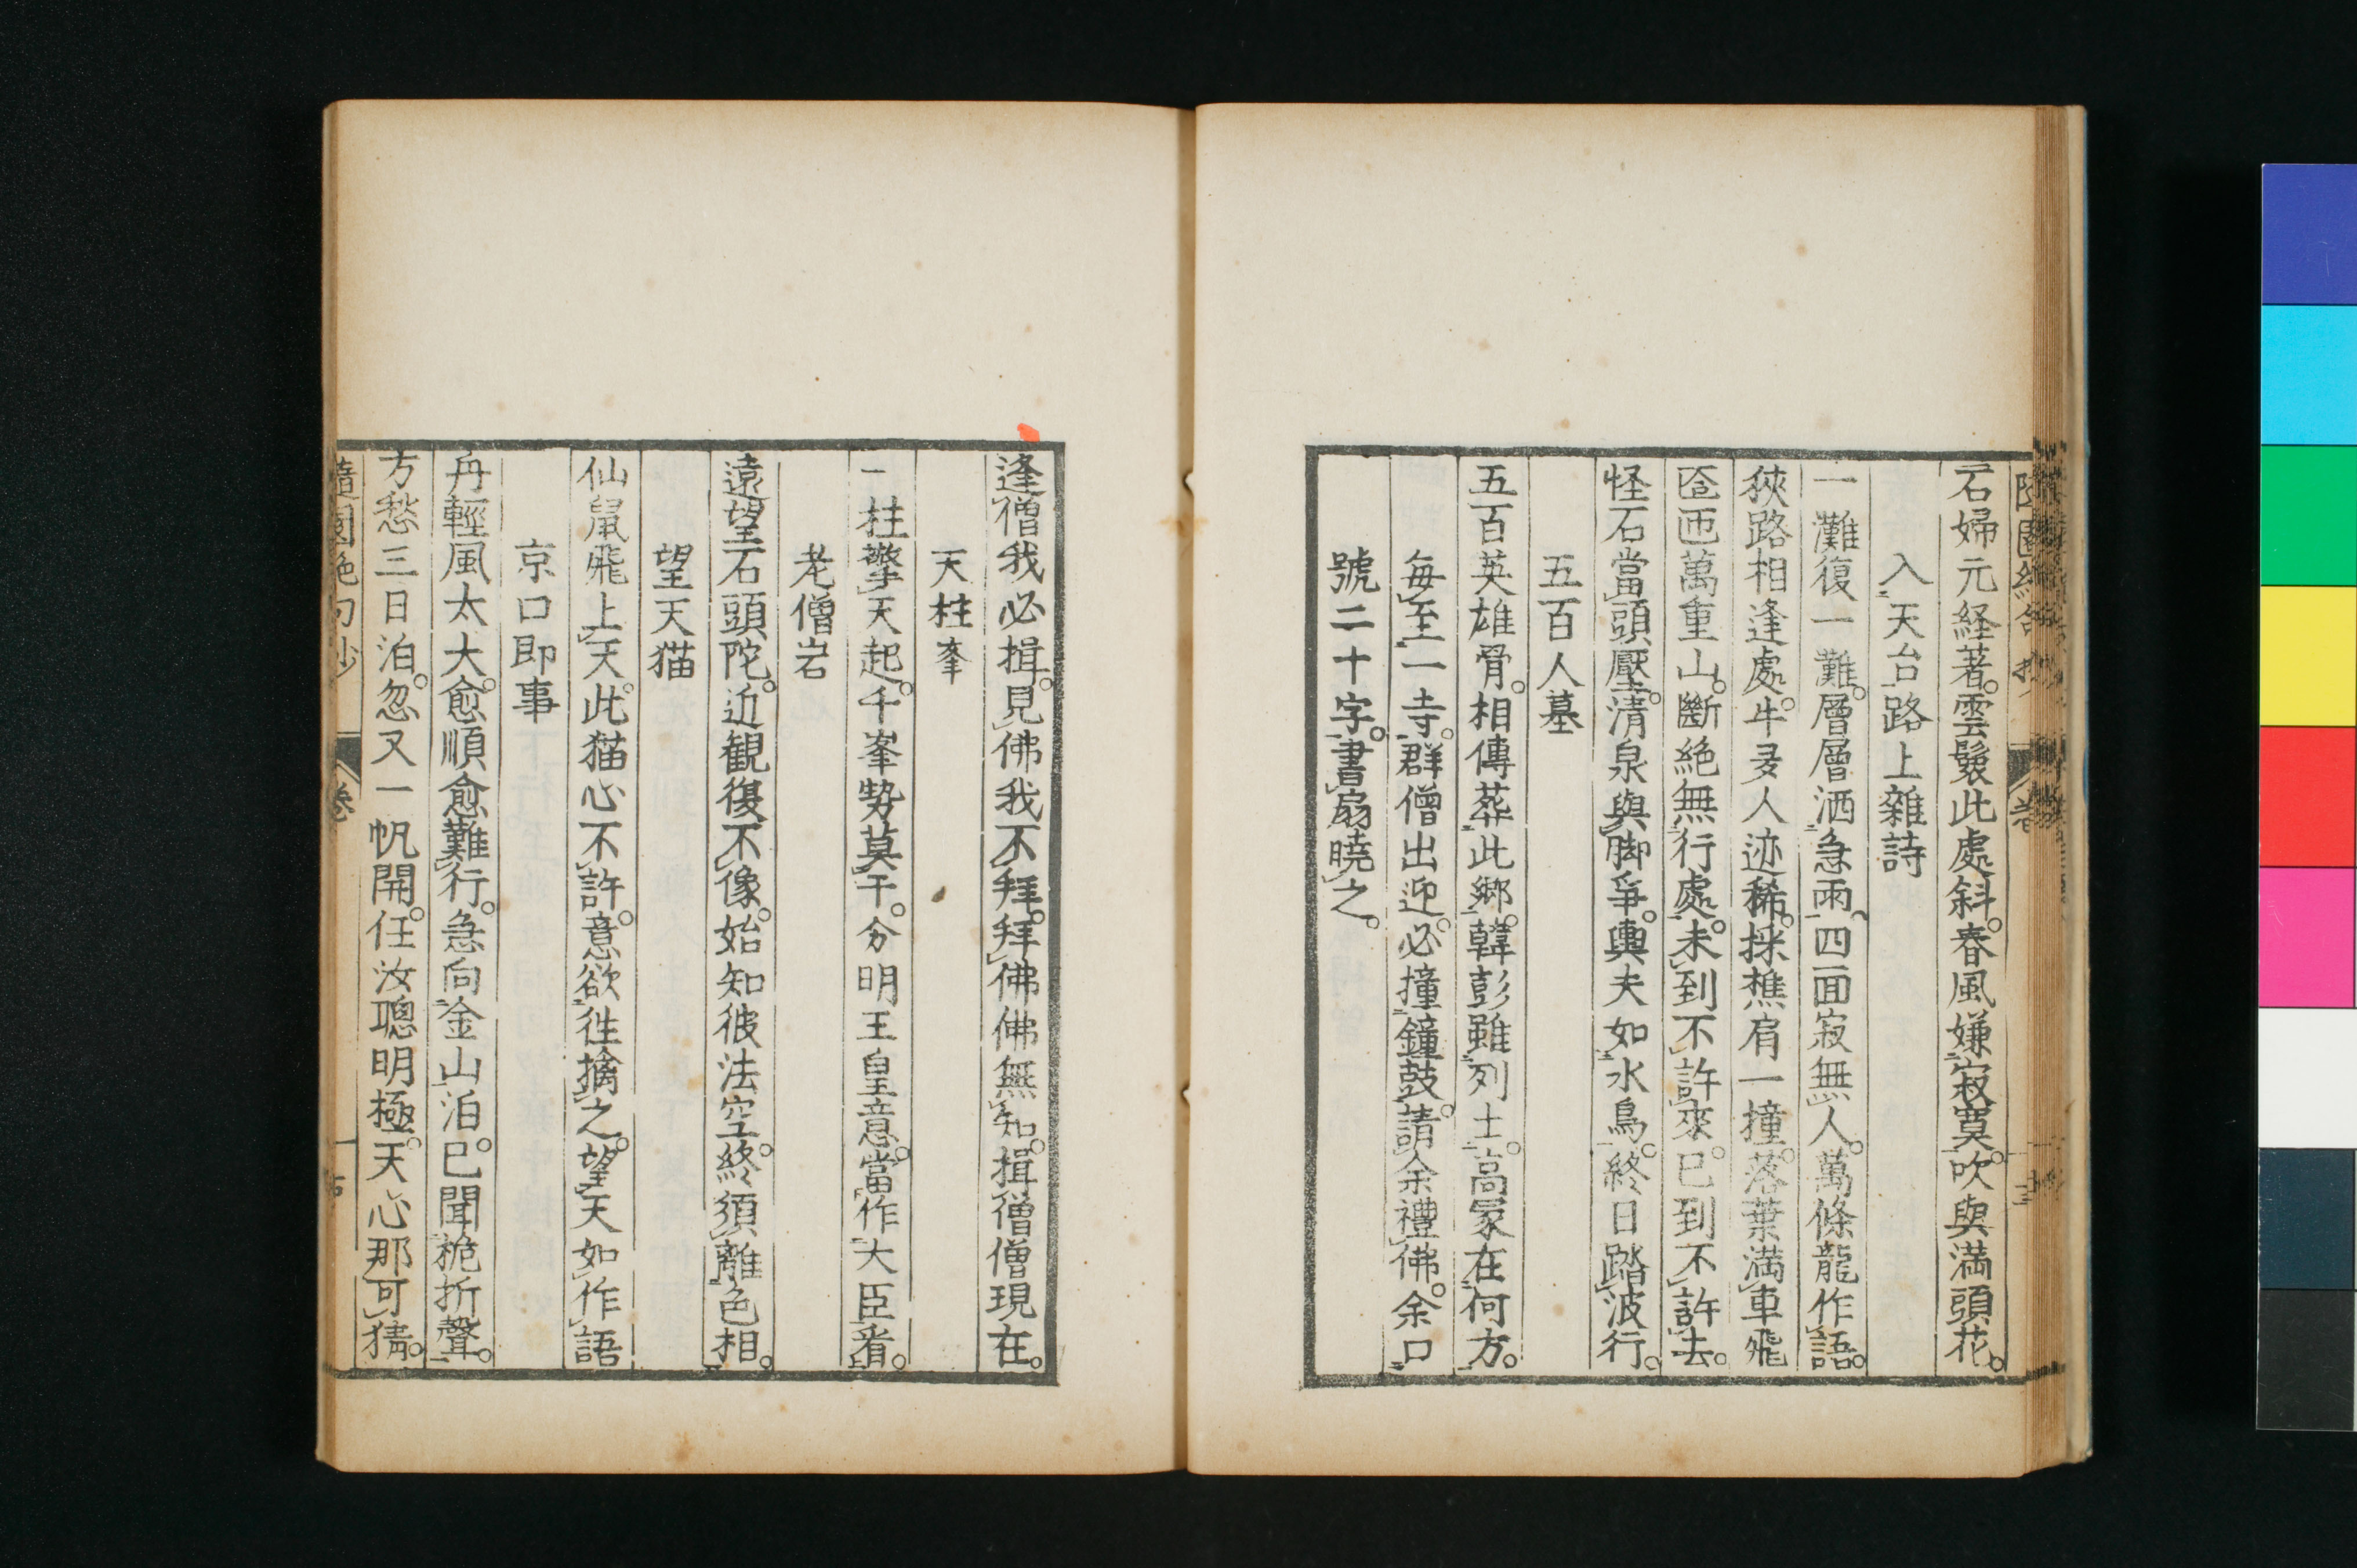 石婦元経著。雲鬟此處斜。春風嫌寂寞。吹與満頭花。
入天台路上雜詩
一灘復一難。層層洒急雨。四面寂無人。萬條龍作語。
狹路相逢處。牛多人迹稀。採樵肩一撞。落葉満車飛
匼匝萬重山。斷絶無行處。未到不許來。已到不許去。
怪石當頭壓。清泉與脚爭。輿夫如水鳥。終日踏波行。
五百人墓
五百英雄骨。相傳葬此郷。韓彭雖列土。高冢在何方。
毎至一寺。群僧出迎。必撞鐘鼓。請余禮佛。余口
號二十字。書扇曉之。
逢僧我必揖。見佛我不拜。拜佛佛無知。揖僧僧現在。
天柱峯
一柱擎天起。千峯勢莫干。分明王皇意。當作大臣看。
老僧岩
遠望石頭陀。近観復不像。始知彼法空。終須離色相。
望天猫
仙鼠飛上天。此猫心不許。意欲徃擒之。望天如作語
京口即事
舟輕風太大。愈順愈難行。急向金山泊。已聞桅折聲。
方愁三日泊。忽又一帆開。任汝聰明極。天心那可猜。
隨園絶句抄 卷